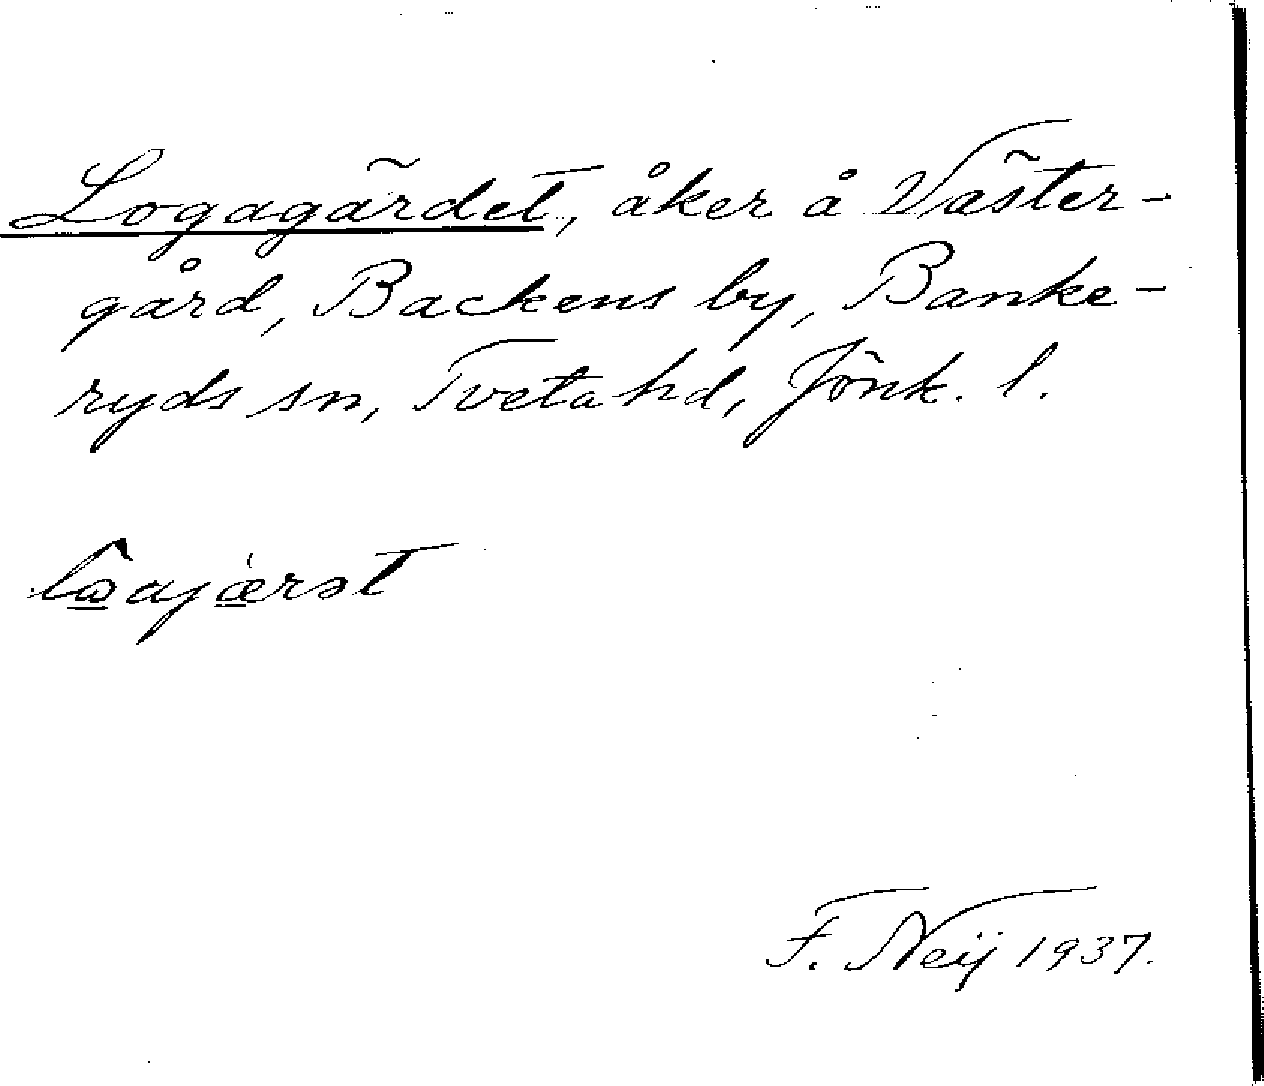 Logagärdet, åker å Väster-
gård, Backens by, Banke-
ryds sn, Tveta hd, Jönk. l.
F. Neij 1937.